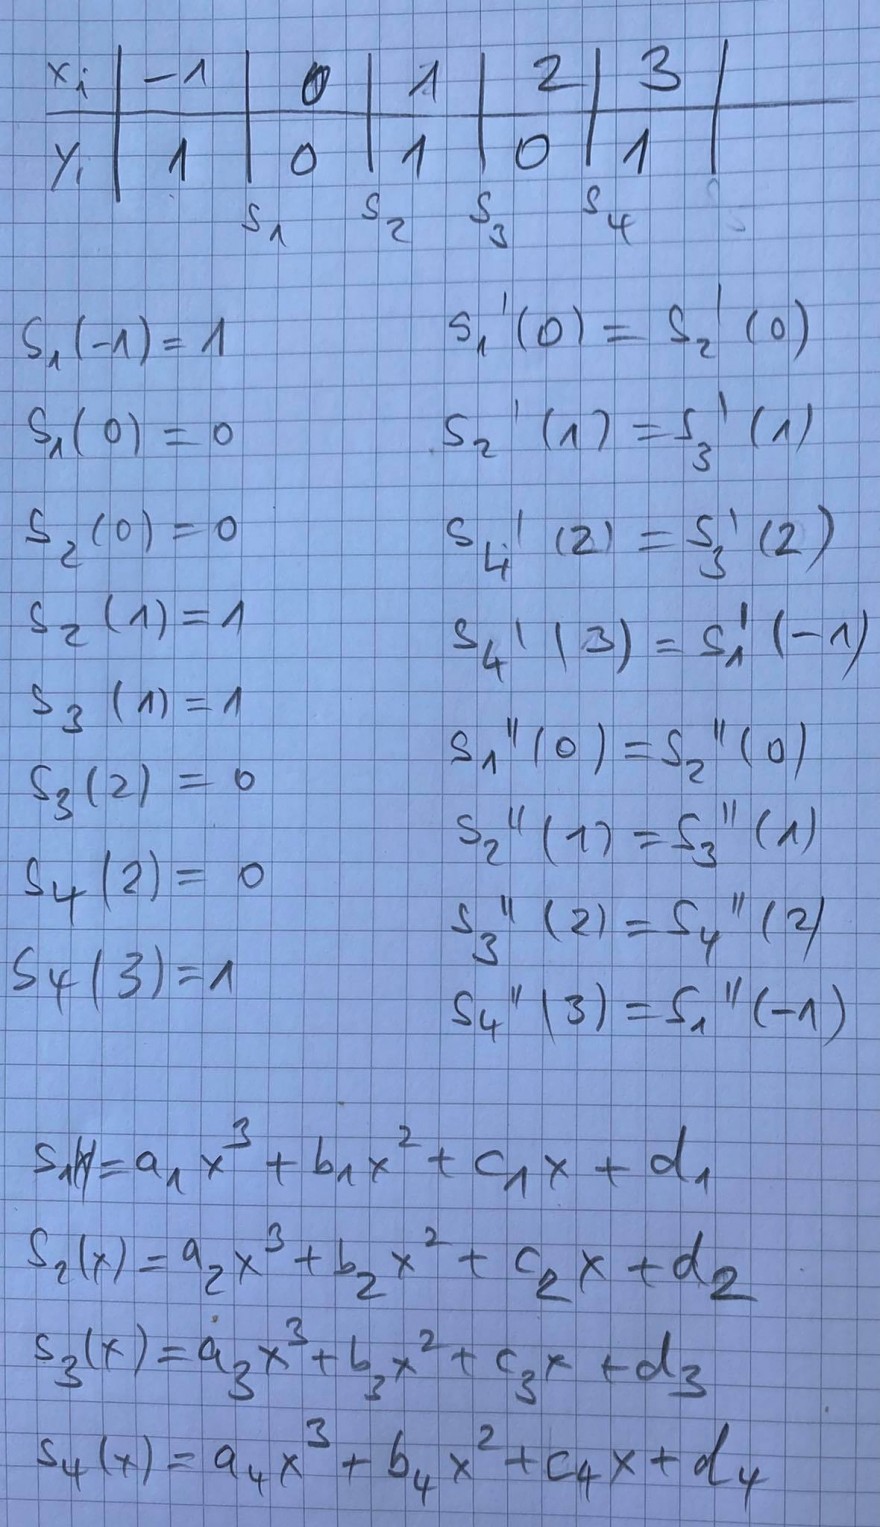 xᵢ | -1 | 0 | 1 | 2 | 3 |
yᵢ | 1 | 0 | 1 | 0 | 1 |
S₁ S₂ S₃ S₄
S₁(-1) = 1
S₁(0) = 0
S₂(0) = 0
S₂(1) = 1
S₃(1) = 1
S₃(2) = 0
S₄(2) = 0
S₄(3) = 1
S₁'(0) = S₂'(0)
S₂'(1) = S₃'(1)
S₄'(2) = S₃'(2)
S₄'(3) = S₁'(-1)
S₁''(0) = S₂''(0)
S₂''(1) = S₃''(1)
S₃''(2) = S₄''(2)
S₄''(3) = S₁''(-1)
S₁(x) = a₁x³ + b₁x² + c₁x + d₁
S₂(x) = a₂x³ + b₂x² + c₂x + d₂
S₃(x) = a₃x³ + b₃x² + c₃x + d₃
S₄(x) = a₄x³ + b₄x² + c₄x + d₄